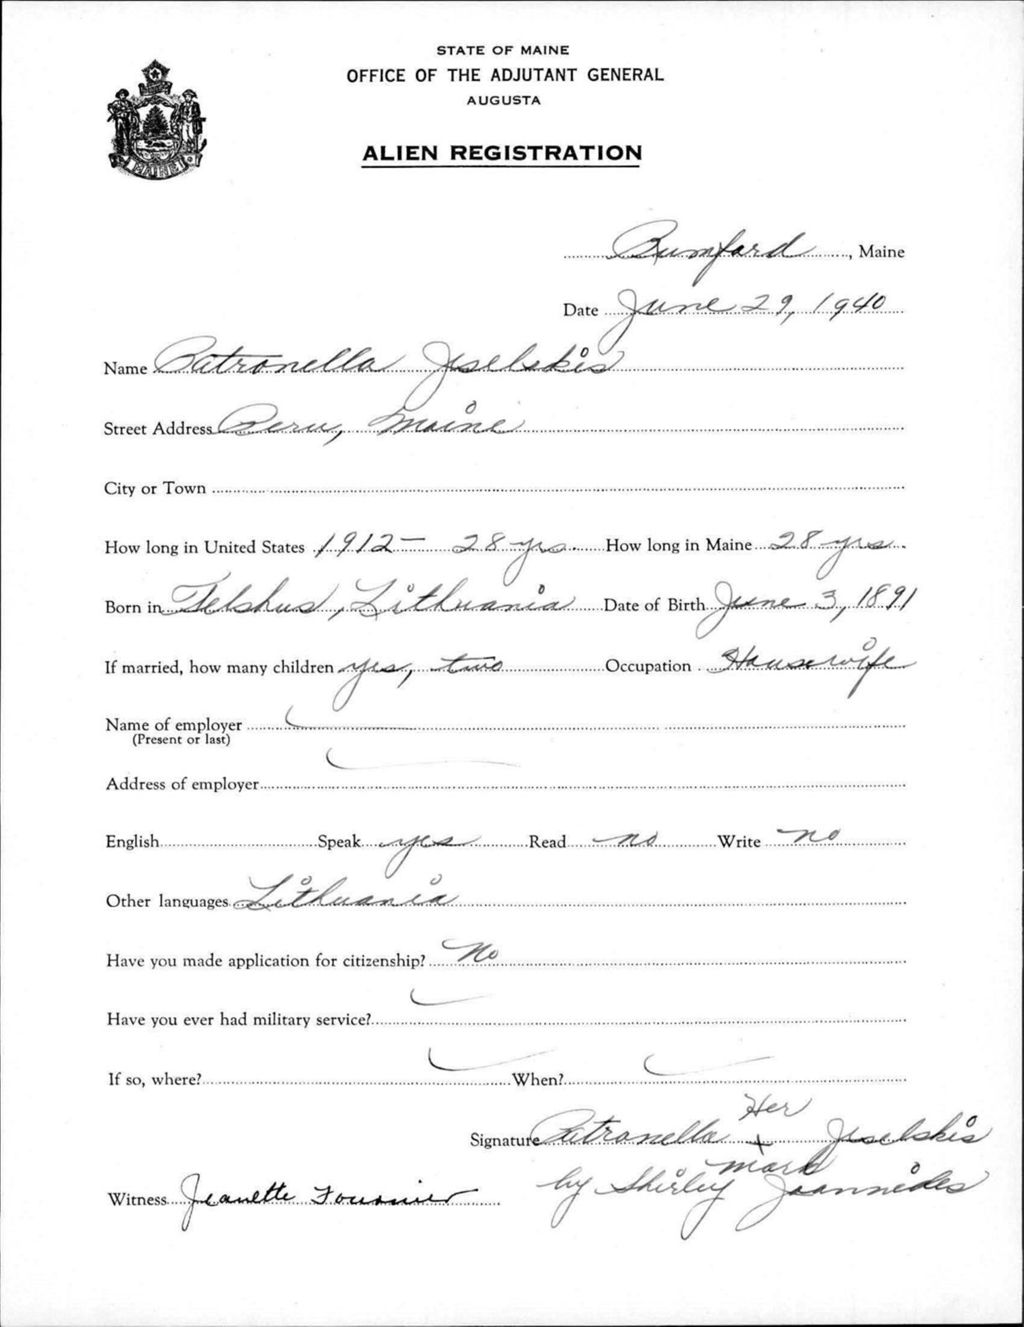 STATE OF MAINE
OFFICE OF THE ADJUTANT GENERAL
AUGUSTA
ALIEN REGISTRATION
MAINE
Rumford, Maine
Date June 29, 1940
Name Patronella Jeselskis
Street Address Peru, Maine
City or Town
How long in United States 1912 - 28 yrs. How long in Maine 28 yrs.
Born in Telshus, Lithuania Date of Birth June 3, 1891
If married, how many children yes, two Occupation Housewife
Name of employer
(Present or last)
Address of employer
English Speak yes Read no Write no
Other languages Lithuania
Have you made application for citizenship? No
Have you ever had military service?
If so, where? When?
Her
Signature Patronella x Jeselskis
mark
Witness Jeanette Fournier by Shirley Joannides